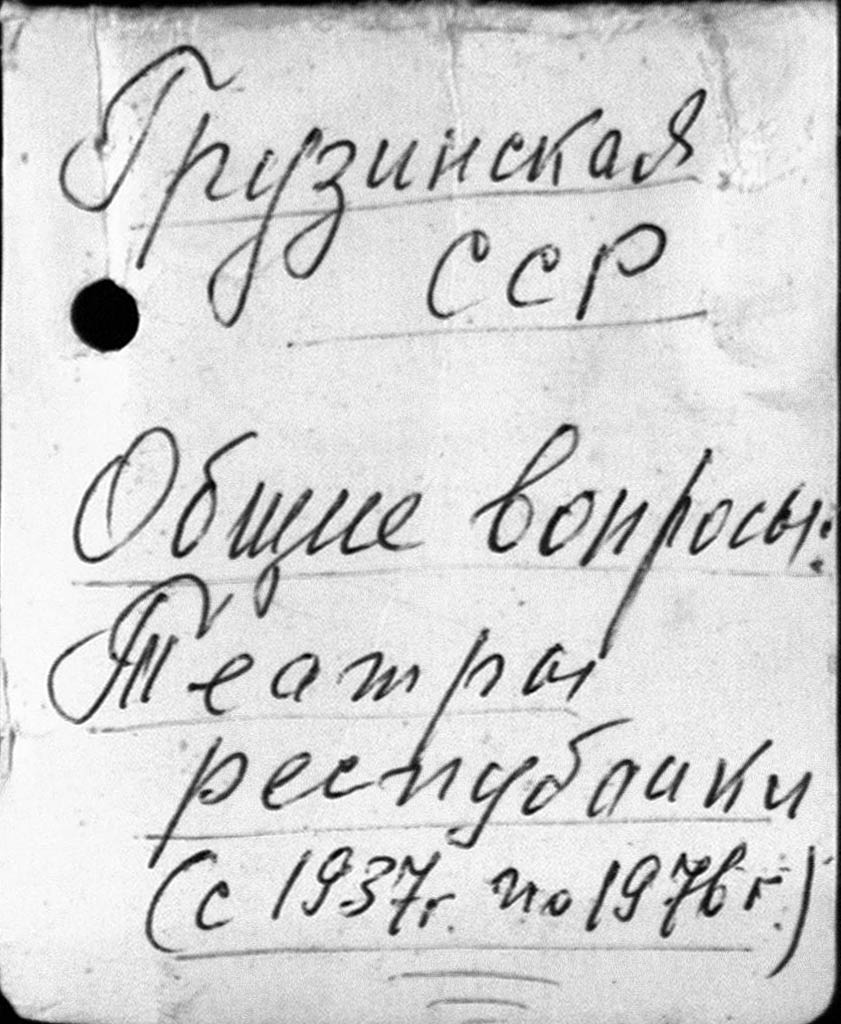 Грузинская
ССР
Общие вопросы.
Театры
республики
(с 1937г. по 1976г.)